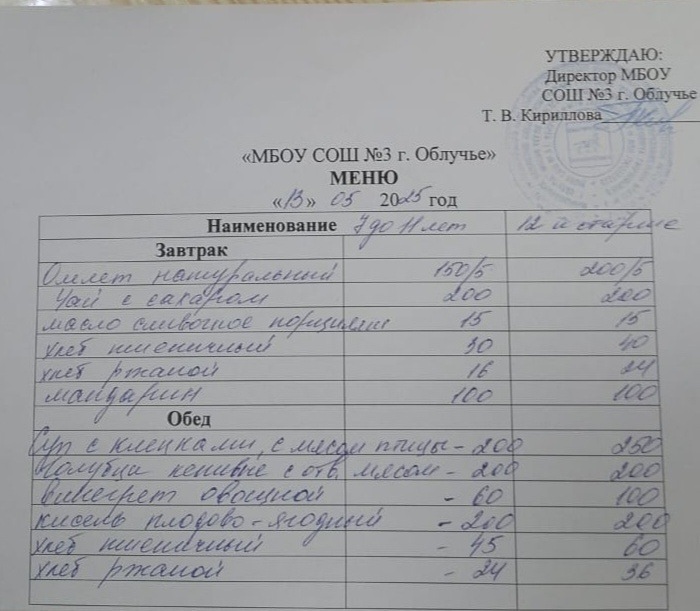 УТВЕРЖДАЮ:
Директор МБОУ
СОШ №3 г. Облучье
Т. В. Кириллова
«МБОУ СОШ №3 г. Облучье»
МЕНЮ
«13» 05 2025 год
Наименование 7 до 11 лет 12 и старше
Завтрак
Омлет натуральный 150/5 200/5
Чай с сахаром 200 200
масло сливочное порциями 15 15
хлеб пшеничный 30 40
хлеб ржаной 16 24
мандарин 100 100
Обед
Суп с клецками, с мясом птицы - 200 250
голубцы ленивые с отв. мясом - 200 200
винегрет овощной - 60 100
кисель плодово-ягодный - 200 200
хлеб пшеничный - 45 60
хлеб ржаной - 24 36